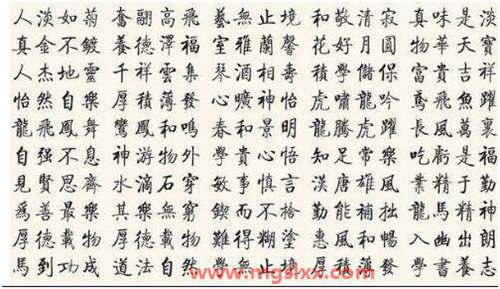 人淡如菊 奮翮高飛 藝無止境 和敬清寂 真味是淡
真金不鍍 養德澤福 室雅蘭馨 花好月圓 物華天寶
人杰地靈 千祥雲集 琴酒相壽 學儲保 富貴吉祥
怡然自樂 厚積薄發 心曠神怡 虎嘯龍吟 鳶飛魚躍
龍飛鳳舞 鸞鳳和鳴 春和景明 龍騰虎躍 長風萬裏
自強不息 神游物外 學貴心悟 知足常樂 吃虧是福
見賢思齊 水滴石穿 敏事慎言 漢唐雄風 業精于勤
爲善最樂 其樂無窮 鍥而不捨 勤能補拙 龍馬精神
厚德載物 厚德載物 難得糊塗 惠風和暢 入幽出朗
馬到功成 道法自然 學無止境 厚積薄發 學書養志
www.mgslxx.com